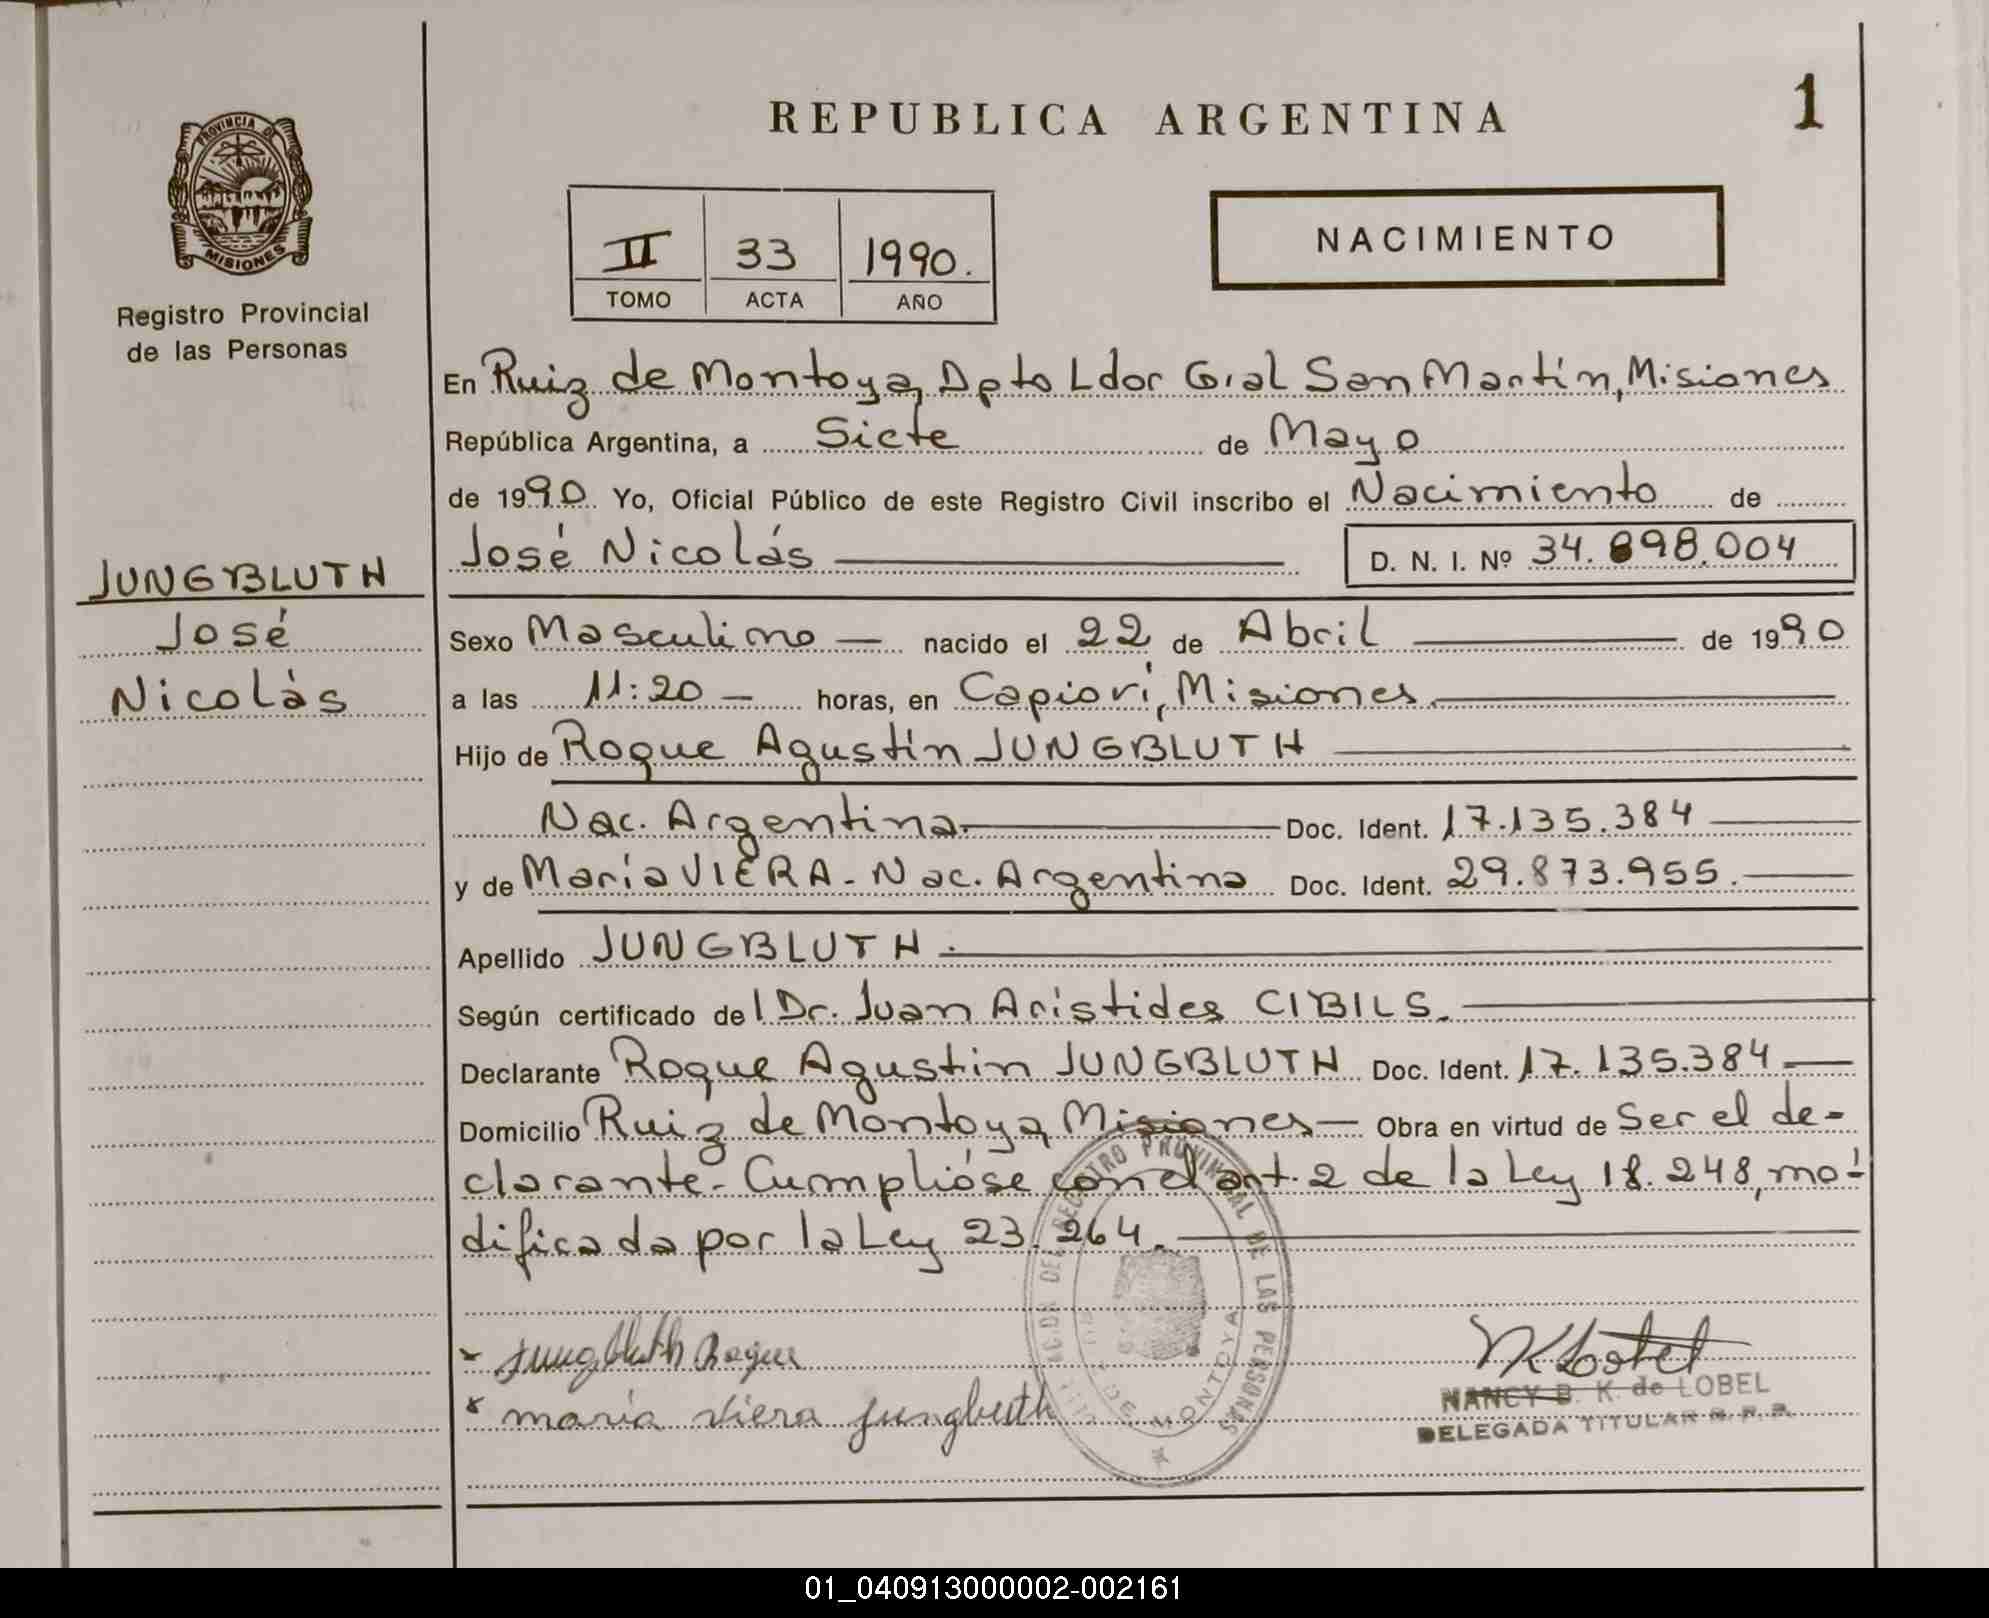 REPUBLICA ARGENTINA
1
PROVINCIA DE
MISIONES
Registro Provincial
de las Personas
II 33 1990.
TOMO ACTA AÑO
NACIMIENTO
En Ruiz de Montoya, Dpto Ldor Gral San Martín, Misiones
República Argentina, a Siete de Mayo
de 1990 Yo, Oficial Público de este Registro Civil inscribo el Nacimiento de
José Nicolás D. N. I. Nº 34.898.004
JUNGBLUTH
José
Nicolás
Sexo Masculino — nacido el 22 de Abril de 1990
a las 11:20 — horas, en Capioví, Misiones
Hijo de Roque Agustín JUNGBLUTH
Nac. Argentina Doc. Ident. 17.135.384
y de María VIERA - Nac. Argentina Doc. Ident. 29.873.955.
Apellido JUNGBLUTH.
Según certificado del Dr. Juan Arístides CIBILS.
Declarante Roque Agustin JUNGBLUTH Doc. Ident. 17.135.384
Domicilio Ruiz de Montoya, Misiones — Obra en virtud de Ser el de-
clarante. Cumplióse con el art. 2 de la Ley 18.248, mo-
dificada por la Ley 23.264.
REGISTRO PROVINCIAL DE LAS PERSONAS
DE MONTOYA
x Jungbluth Roque
x maria Viera Jungbluth
NANCY B. K. de LOBEL
DELEGADA TITULAR R. P. P.
01_040913000002-002161